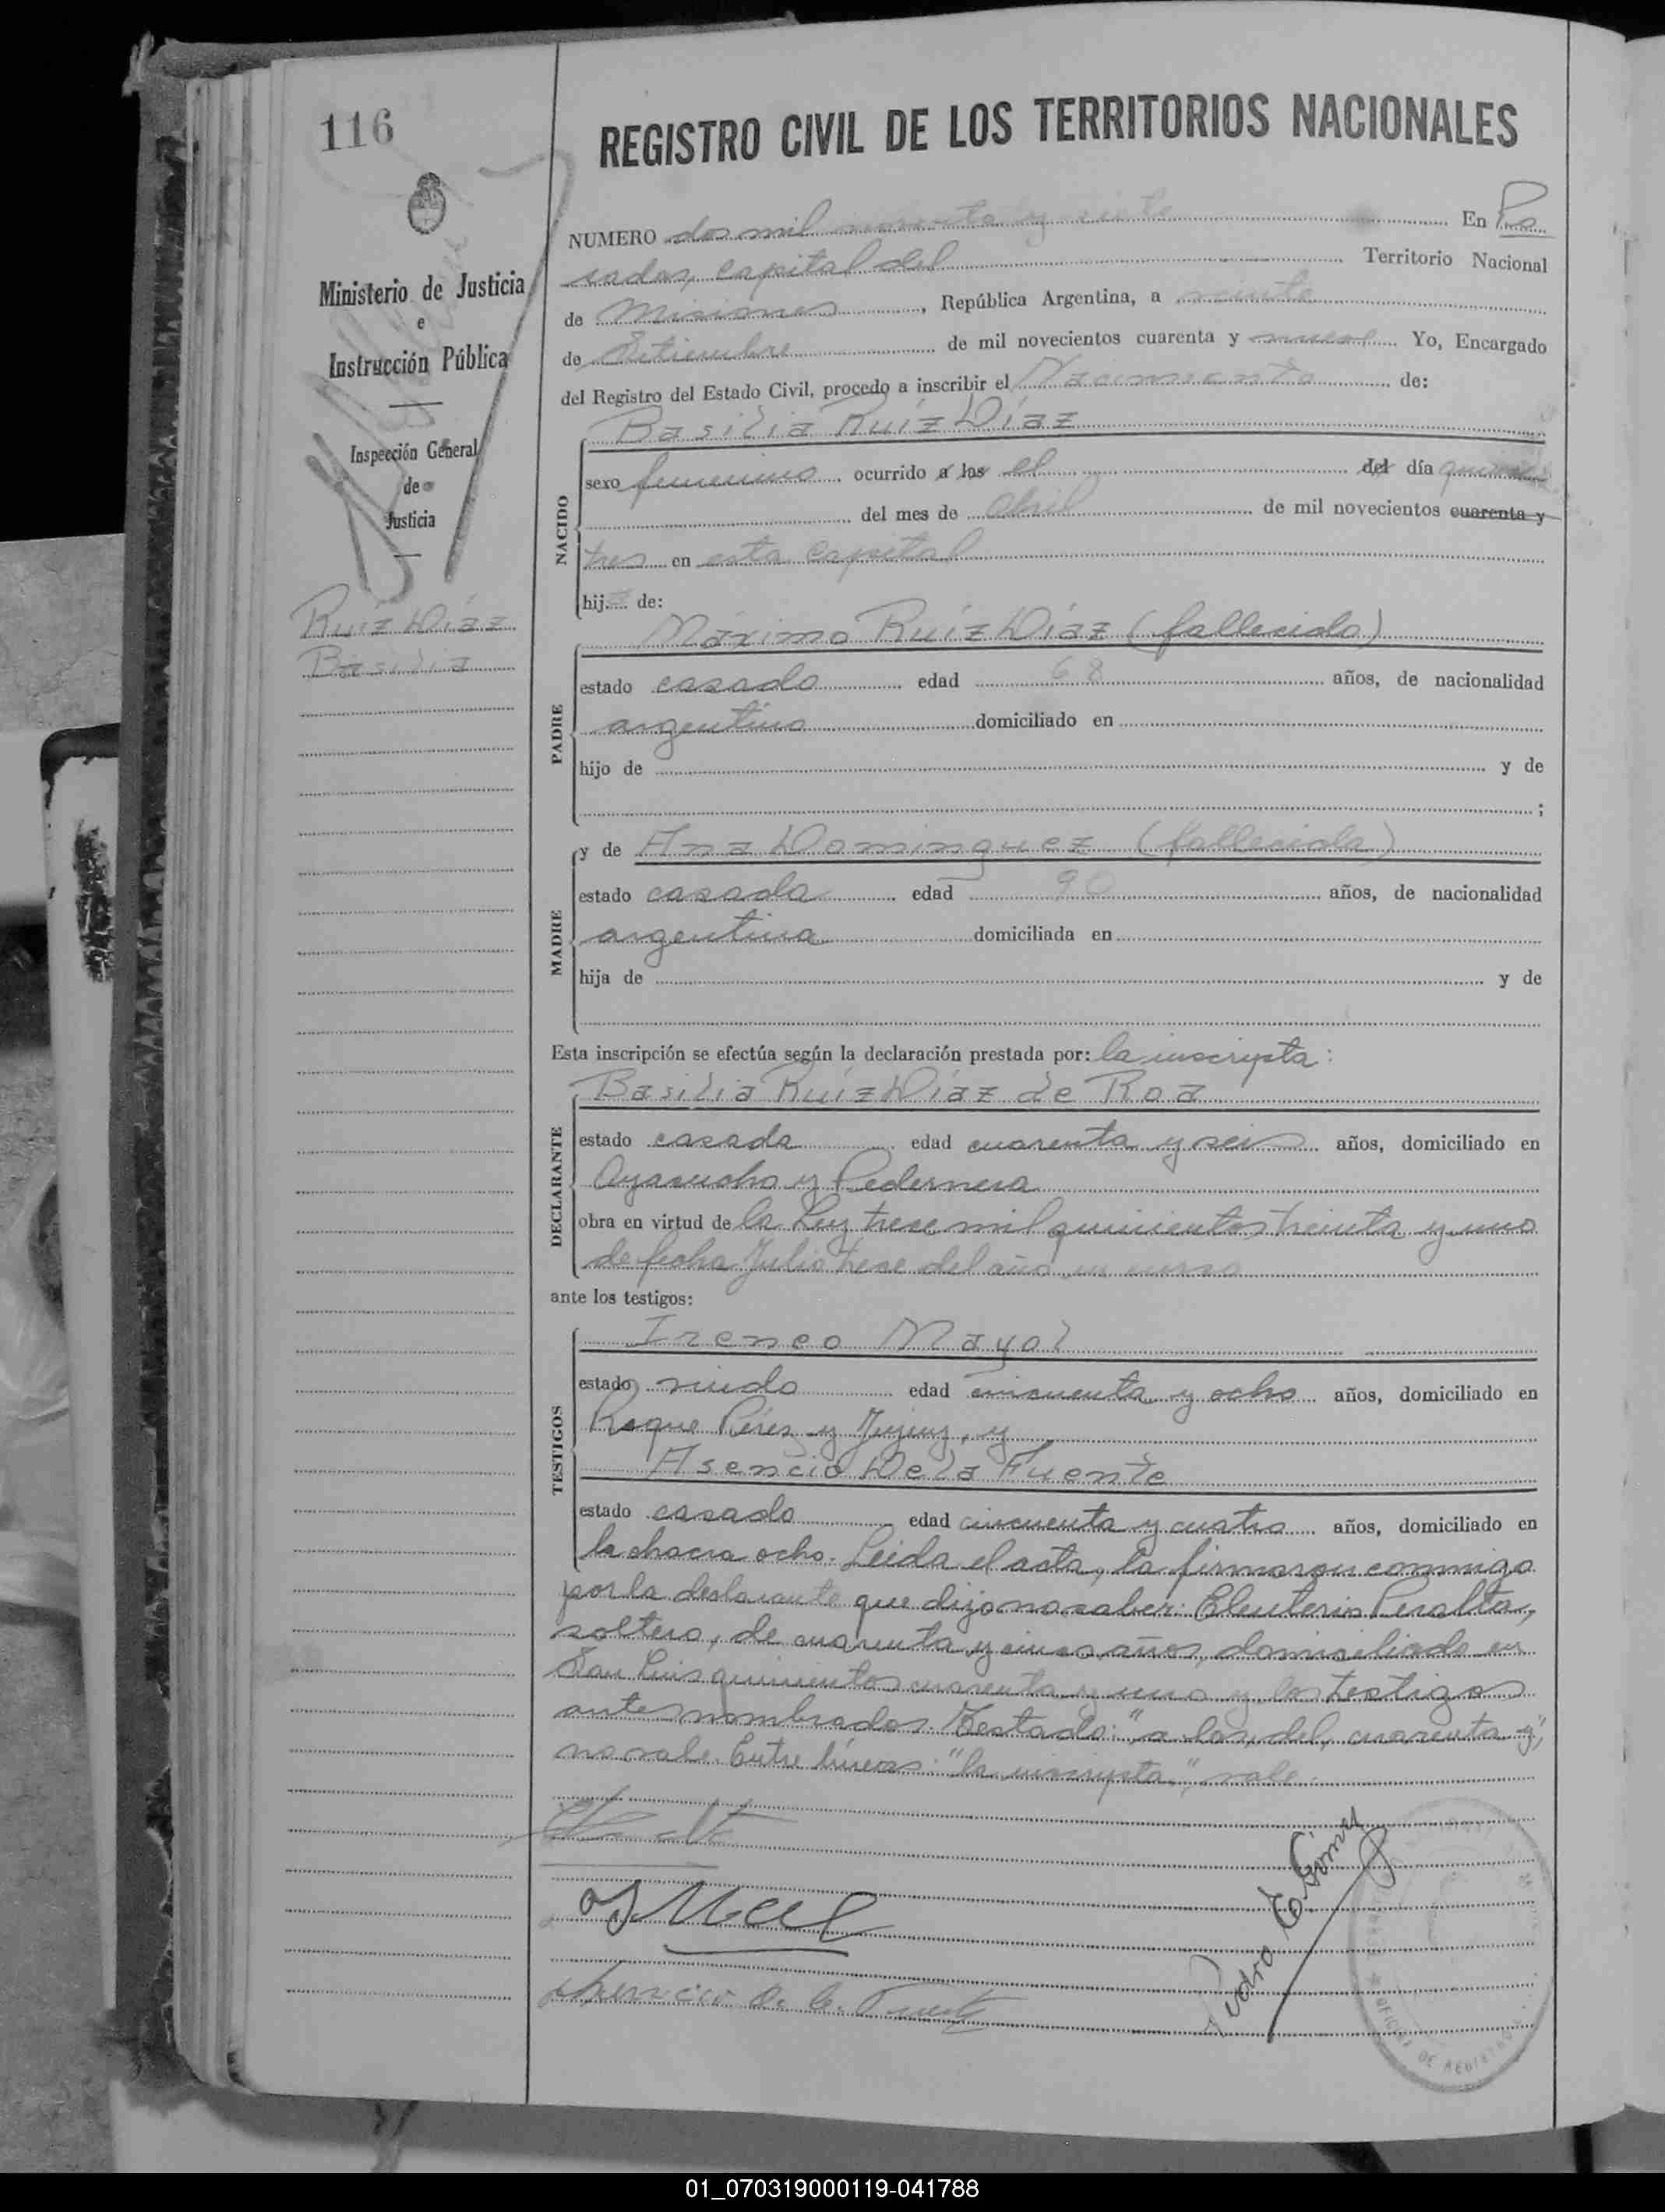 116
REGISTRO CIVIL DE LOS TERRITORIOS NACIONALES
NUMERO dos mil noventa y siete En Po
sadas, capital del Territorio Nacional
de Misiones, República Argentina, a veinte
de Setiembre de mil novecientos cuarenta y nueve. Yo, Encargado
del Registro del Estado Civil, procedo a inscribir el Nacimiento de:
Basilia Ruíz Díaz
sexo femenino, ocurrido a las el del día quince
del mes de Abril de mil novecientos cuarenta y
tres en esta Capital
hija de:
NACIDO
Máximo Ruíz Díaz (fallecido)
estado casado edad 68 años, de nacionalidad
argentino domiciliado en
hijo de y de
;
PADRE
y de Ana Dominguez (fallecida)
estado casada edad 90 años, de nacionalidad
argentina domiciliada en
hija de y de
MADRE
Esta inscripción se efectúa según la declaración prestada por: la inscripta:
Basilia Ruíz Díaz de Roa
estado casada edad cuarenta y seis años, domiciliado en
Ayacucho y Pedernera
obra en virtud de la Ley trece mil quinientos treinta y uno
de fecha Julio trece del año en curso
DECLARANTE
ante los testigos:
Ireneo Mayol
estado viudo edad cincuenta y ocho años, domiciliado en
Roque Pérez y Jujuy, y
Asencio De la Fuente
estado casado edad cincuenta y cuatro años, domiciliado en
la chacra ocho. Leida el acta, la firmaron conmigo
TESTIGOS
por la declarante que dijo no saber: Eleuterio Peralta,
soltero, de cuarenta y cinco años, domiciliado en
San Luis quinientos cuarenta y uno y los testigos
antes nombrados. Testado: "a las, del, cuarenta y",
no vale. Entre líneas: "la inscripta", vale.
Pedro E. Gómez
OFICINA DE REGISTRO
Ministerio de Justicia
e
Instrucción Pública
Inspección General
de
Justicia
Ruíz Díaz
Basilia
01_070319000119-041788